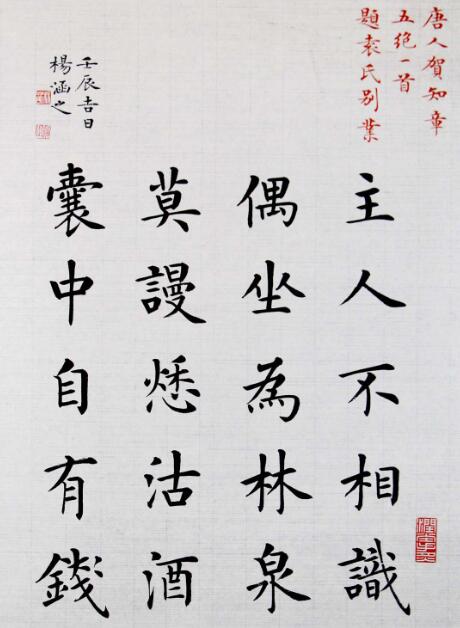 唐人賀知章
五絕一首
題袁氏別業
主人不相識
偶坐為林泉
莫謾愁沽酒
囊中自有錢
壬辰吉日
楊涵之